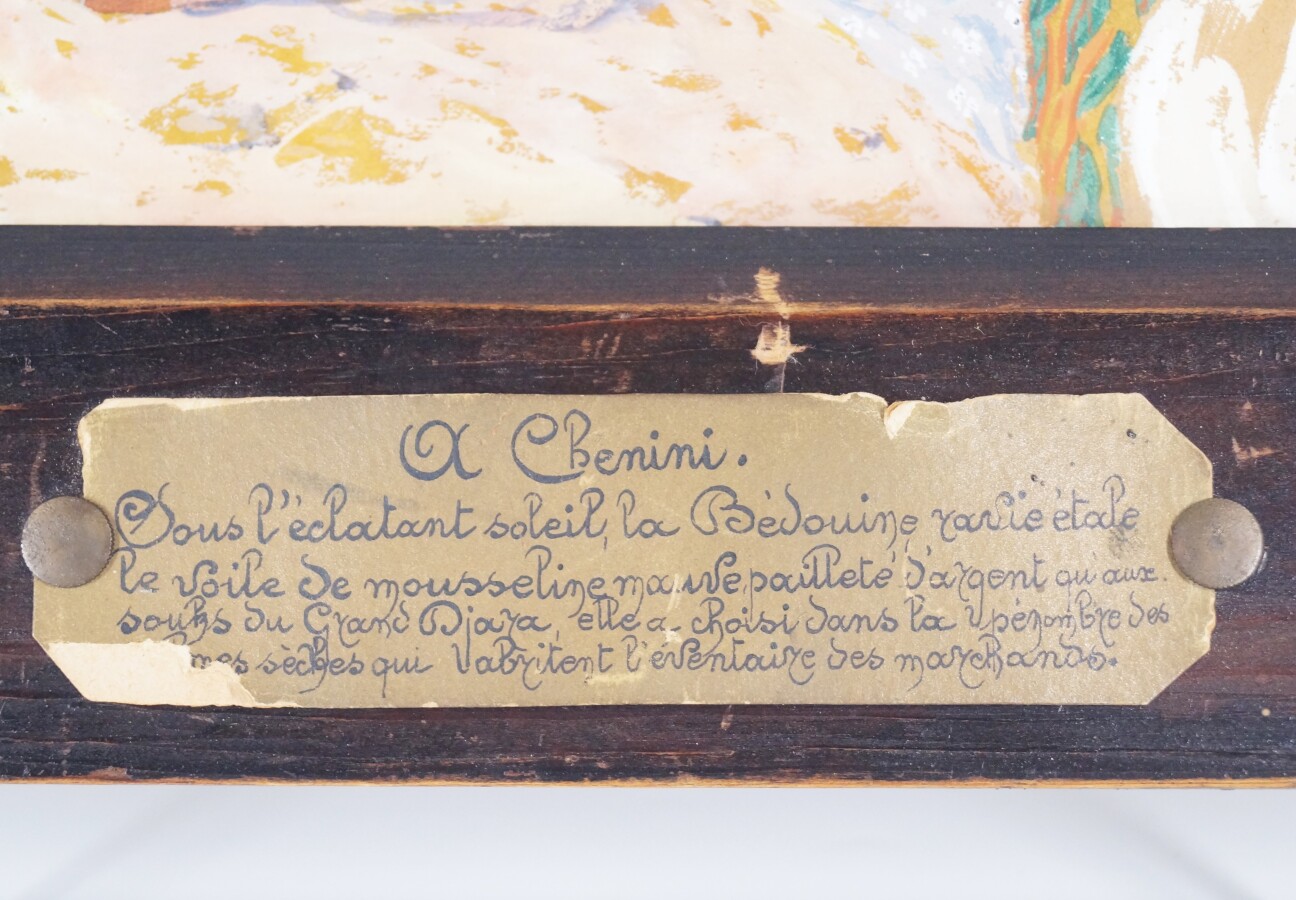 A Chenini.
Sous l'éclatant soleil, la Bèdouine ravie étale
le voile de mousseline mauve pailleté d'argent qu'aux
souks du Grand Djara, elle a choisi dans la pénombre des
sèches qui abritent l'éventaire des marchands.